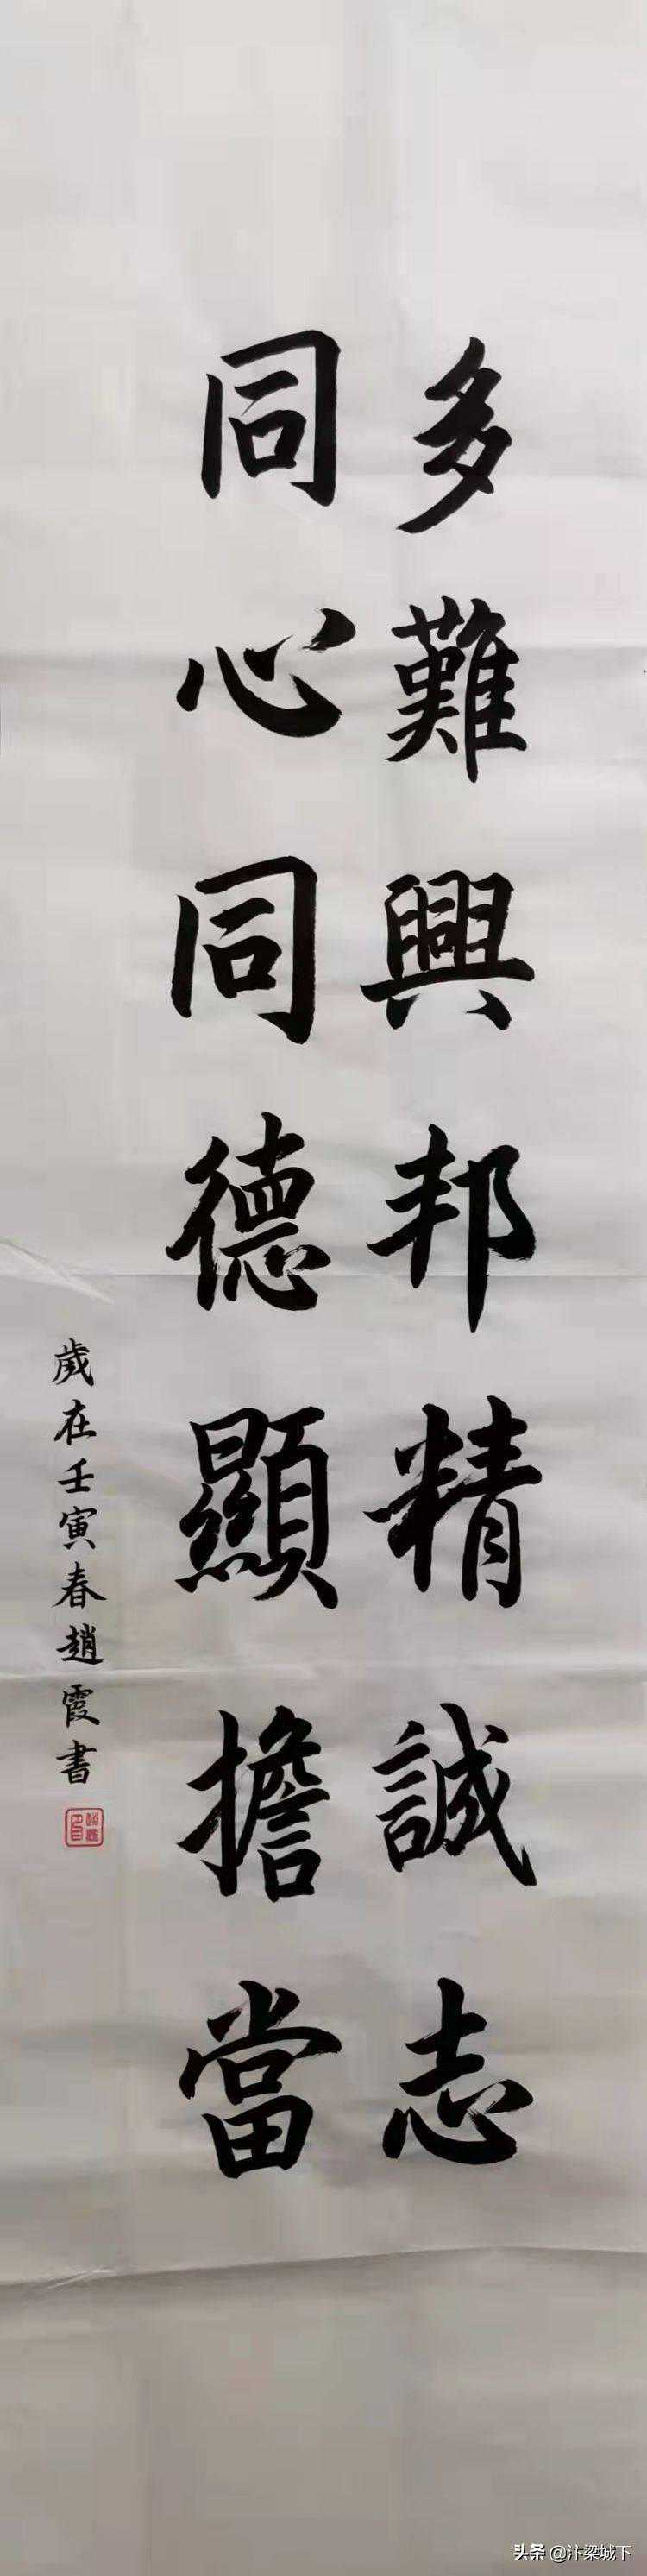 多難興邦精誠志
同心同德顯擔當
歲在壬寅春趙霞書
头条 @汴梁城下